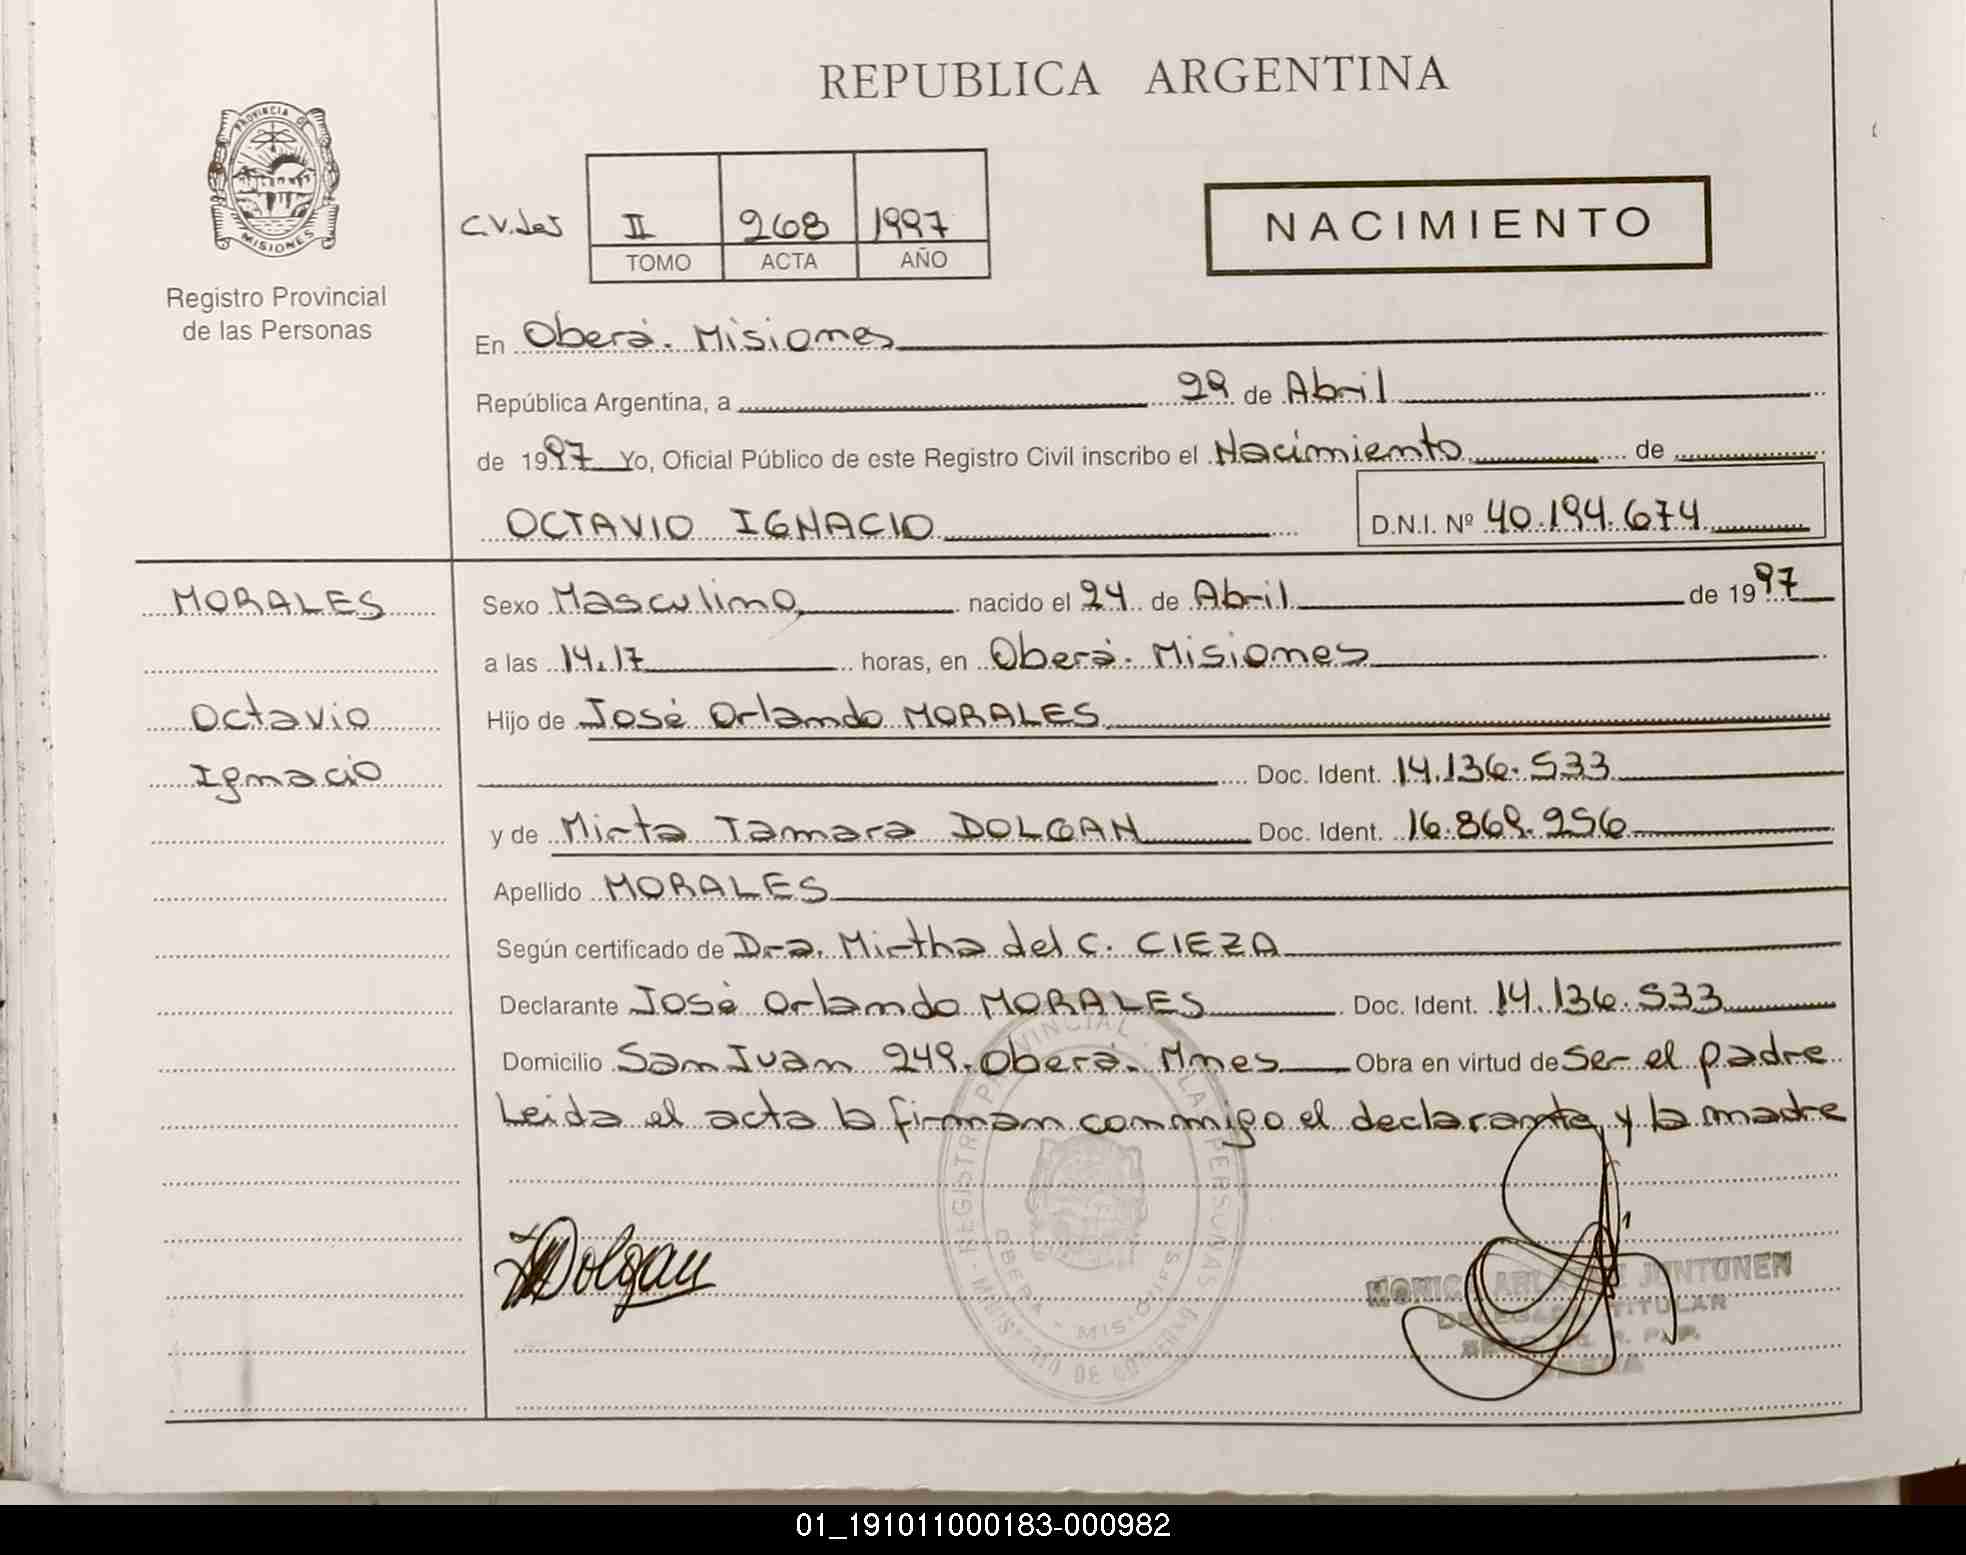 REPUBLICA ARGENTINA
PROVINCIA DE
MISIONES
Registro Provincial
de las Personas
II 268 1997
TOMO ACTA AÑO
NACIMIENTO
En Oberá. Misiones
República Argentina, a 29 de Abril
de 1997 Yo, Oficial Público de este Registro Civil inscribo el Nacimiento de
OCTAVIO IGNACIO D.N.I. Nº 40.194.674
MORALES
Octavio
Ignacio
Sexo Masculino nacido el 24 de Abril de 1997
a las 14.17 horas, en Oberá. Misiones
Hijo de José Orlando MORALES
Doc. Ident. 14.136.533
y de Mirta Tamara DOLGAN Doc. Ident. 16.869.256
Apellido MORALES
Según certificado de Dra. Mirtha del C. CIEZA
Declarante José Orlando MORALES Doc. Ident. 14.136.533
Domicilio San Juan 249. Oberá. Mnes Obra en virtud de Ser el padre
Leida el acta la firman conmigo el declarante y la madre
Dolgan
JUNTUNEN
TITULAR
01_191011000183-000982